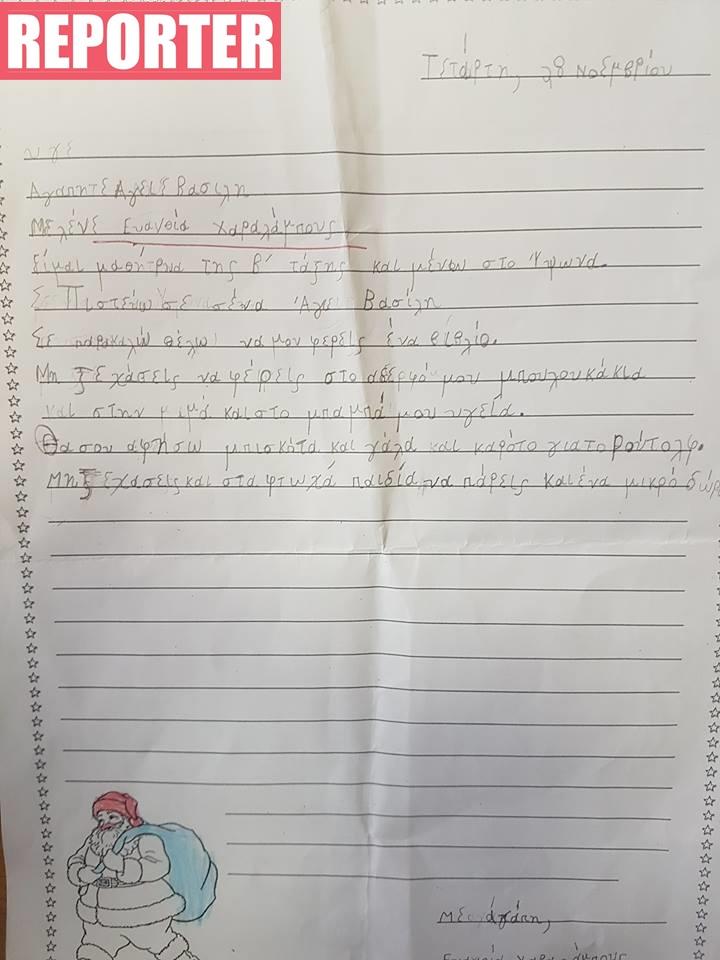 REPORTER
Τετάρτη, 28 Νοεμβρίου
υγε
Αγαπητέ Αγειε Βασιλη
Με λένε Ευανθία Χαραλάμπους
Είμαι μαθήτρια της β' τάξης και μένω στο Ύψωνα.
Πιστεύω σε σένα Άγει Βασίλη
Σε παρακαλώ θέλω να μου φέρεις ένα βιβλίο.
Μη ξεχάσεις να φέιρεις στο αδερφό μου μπουλουκάκια
και στην μαμά και στο μπαμπά μου υγεία.
Θα σου αφήσω μπισκότα και γάλα και καρότο για το Ρούτολφ.
Μη ξεχάσεις και στα φτωχά παιδία, να πάρεις και ένα μικρό δώρ
Με αγάπη,
Ευανθία Χαραλάμπους